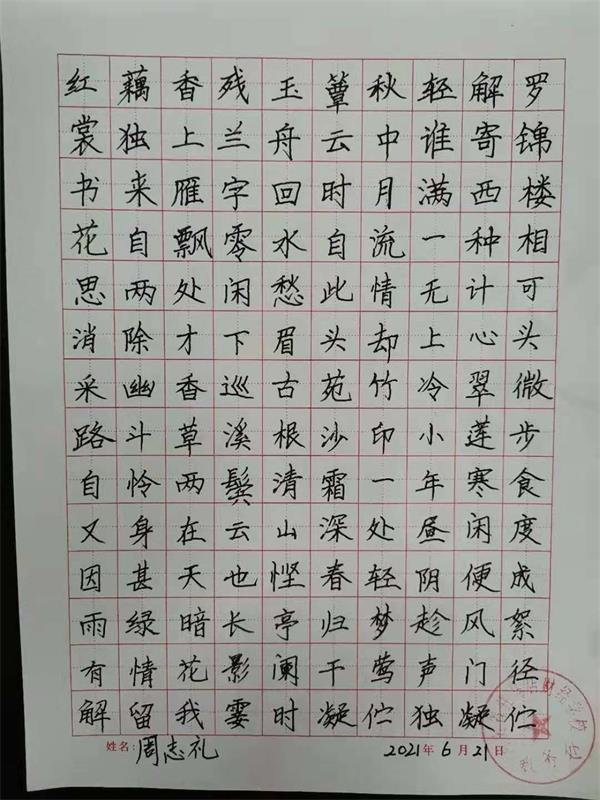 红藕香残玉簟秋轻解罗
裳独上兰舟云中谁寄锦
书来雁字回时月满西楼
花自飘零水自流一种相
思两处闲愁此情无计可
消除才下眉头却上心头
采幽香巡古苑竹冷翠微
路斗草溪根沙印小莲步
自怜两鬓清霜一年寒食
又身在云山深处昼闲度
因甚天也悭春轻阴便成
雨绿暗长亭归梦趁风絮
有情花影阑干莺声门径
解留我霎时凝伫独凝伫
姓名：周志礼 2021年6月21日